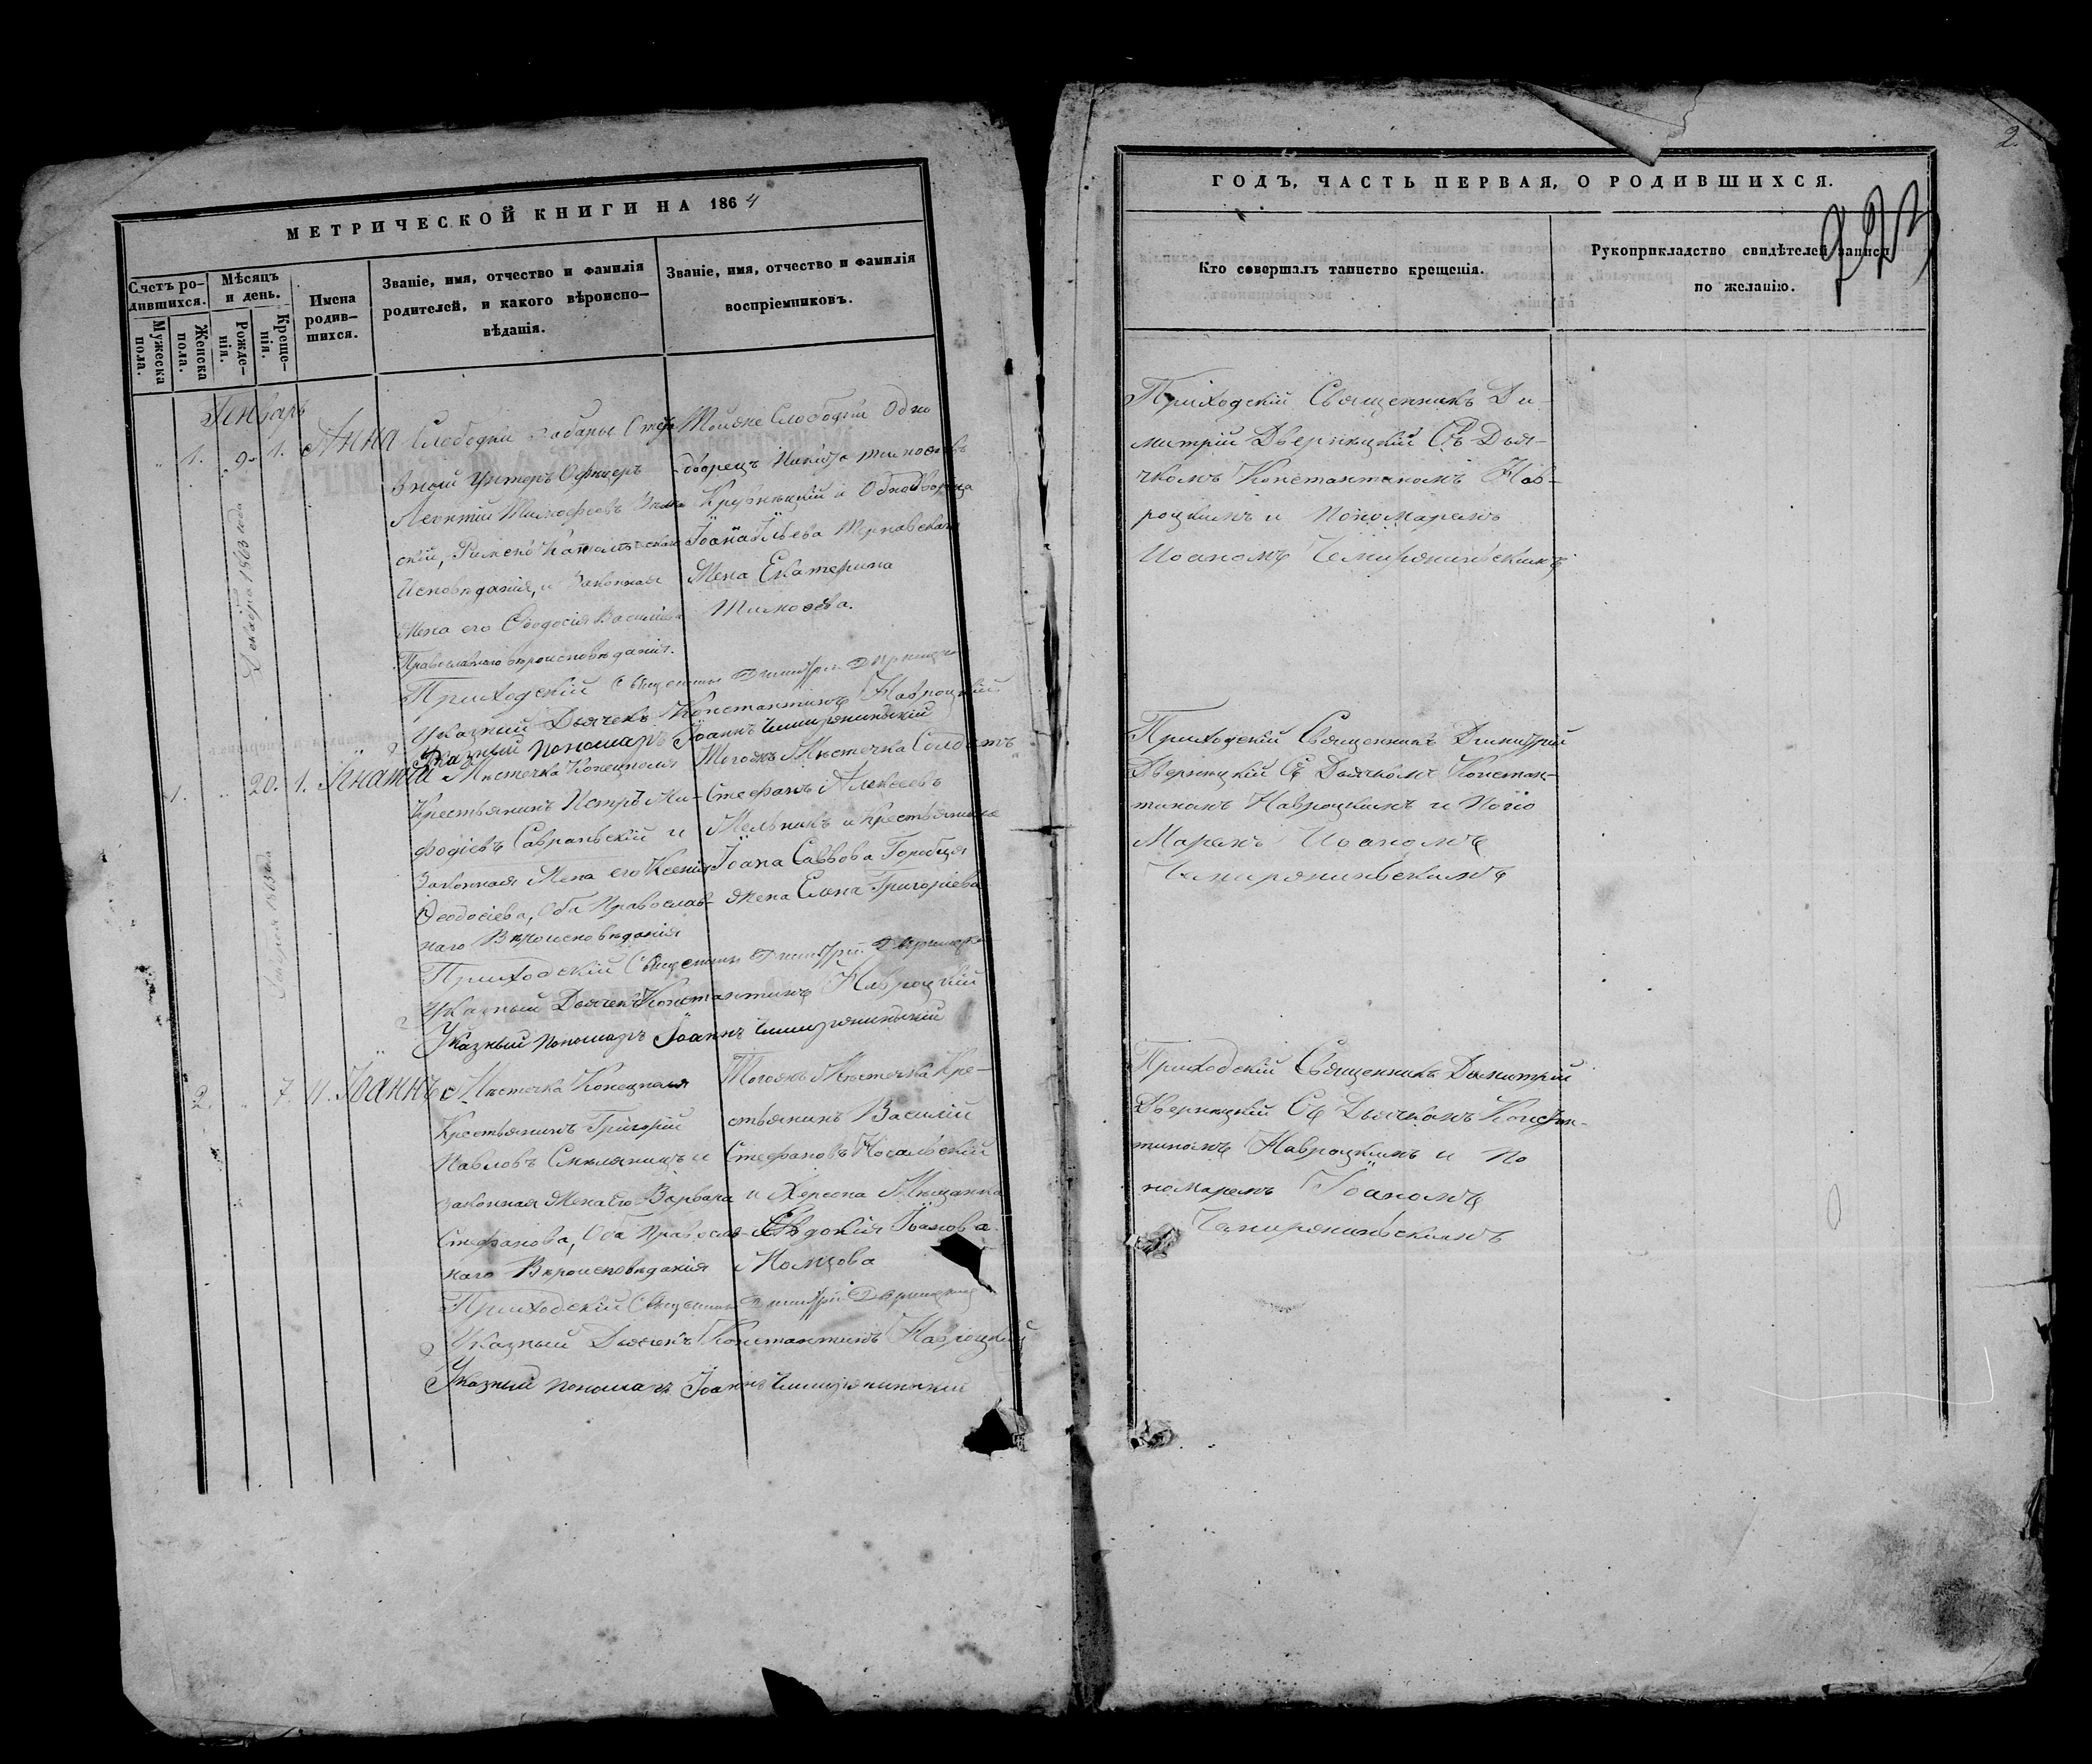 МЕТРИЧЕСКОЙ КНИГИ НА 1864
Счетъ ро-
дившихся.
Мужеска
пола.
Женска
пола.
Мѣсяцъ
и день.
Рожде-
нія.
Креще-
нія.
Имена
родив-
шихся.
Званіе, имя, отчество и фамилія
родителей, и какого вѣроиспо-
вѣданія.
Званіе, имя, отчество и фамилія
воспріемниковъ.
Генварь
1. 9. 1. Анна
Декабря 1863 года
Слободки
Унтеръ Офицеръ
Леонтій Тимофеевъ
скій, Римско Католическаго
Исповѣданія, и Законная
Жена его Ѳеодосія Васильева
Православнаго вѣроисповѣданія.
Тойже Слободки Одно
дворецъ Никита Тимоѳеевъ
и Однодворца
Жена Екатерина
Тимоѳеева.
Приходскій Священникъ Димитрій Дверницкій
Указный Дьячекъ Константинъ Навроцкій
Указный Пономарь Іоаннъ
1. 20. 1. Игнатій
1863 года
Мѣстечка Конецполя
Крестьянинъ Петръ Ми-
фодіевъ Савранскій и
Законная Жена его Ксенія
Ѳеодосіева, Оба Православ-
наго Вѣроисповѣданія
Тогожъ Мѣстечка Солдатъ
Стефанъ Алексеевъ
Мельникъ и Крестьянина
Іоана Саввова Горобця
жена Елена Григоріева
Приходскій Священникъ Димитрій Дверницкій
Указный Дьячекъ Константинъ Навроцкій
Указный Пономарь Іоаннъ
2. 7. 11. Іоаннъ
Мѣстечка Конецполя
Крестьянинъ Григорій
Павловъ и
законная Жена его Варвара
Стефанова, Оба Православ-
наго Вѣроисповѣданія
Тогожъ Мѣстечка Кре-
стьянинъ Василій
Стефановъ
и Херсона Мѣщанка
Евдокія Іоанова
Приходскій Священникъ Димитрій Дверницкій
Указный Дьячекъ Константинъ Навроцкій
Указный Пономарь Іоаннъ
2.
ГОДЪ, ЧАСТЬ ПЕРВАЯ, О РОДИВШИХСЯ.
Кто совершалъ таинство крещенія.
Рукоприкладство свидѣтелей записи
по желанію.
Приходскій Священникъ Ди-
митрій Дверницкій Съ Дья-
чкомъ Константиномъ Нав-
роцкимъ и Пономаремъ
Иоаномъ
Приходскій Священникъ Димитрій
Дверницкій Съ Дьячкомъ Констан-
тиномъ Навроцкимъ и Поно
Маремъ Иоаномъ
Приходскій Священникъ Димитрій
Дверницкій Съ Дьячкомъ Констан-
тиномъ Навроцкимъ и По
номаремъ Іоаномъ